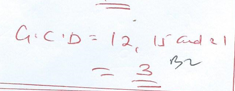 G.C.D = 12, 15 and 21
= 3 B2